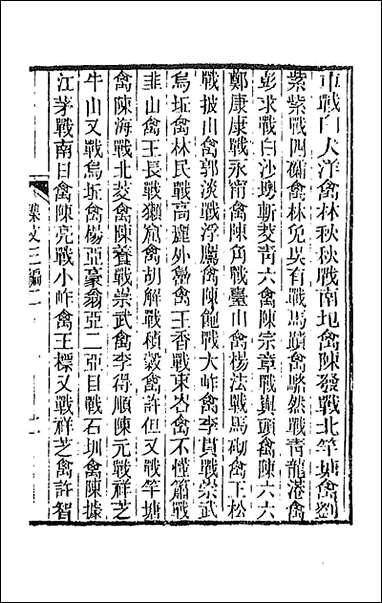 車戰白犬洋禽林秋秋戰南地禽陳發戰北竿塘禽劉
紫紫戰四礵禽林兔吳有戰馬蹟禽駱然戰青龍港禽
彭求戰白沙塽斬婺青六禽陳宗章戰與頭禽陳六六
鄭康康戰永甯禽陳角戰臺山禽楊法戰馬砌禽王松
戰披山禽郭淡戰浮鷹禽陳飽戰大岞禽李貫戰崇武
烏坵禽林民戰高麗外禽王香戰東岱禽不懂簫戰
韭山禽王長戰獺窟禽胡解戰積穀禽許但又戰竿塘
禽陳海戰北茭禽陳養戰崇武禽李得順陳元戰祥芝
牛山又戰烏坵禽楊亞豪翁亞二亞目戰石圳禽陳據
江茅戰南日禽陳亮戰小岞禽王標又戰祥芝禽許智
雜文三編一